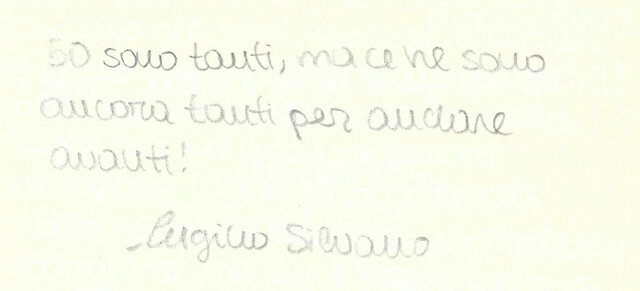 50 sono tanti, ma ce ne sono
ancora tanti per andare
avanti!
Silvano